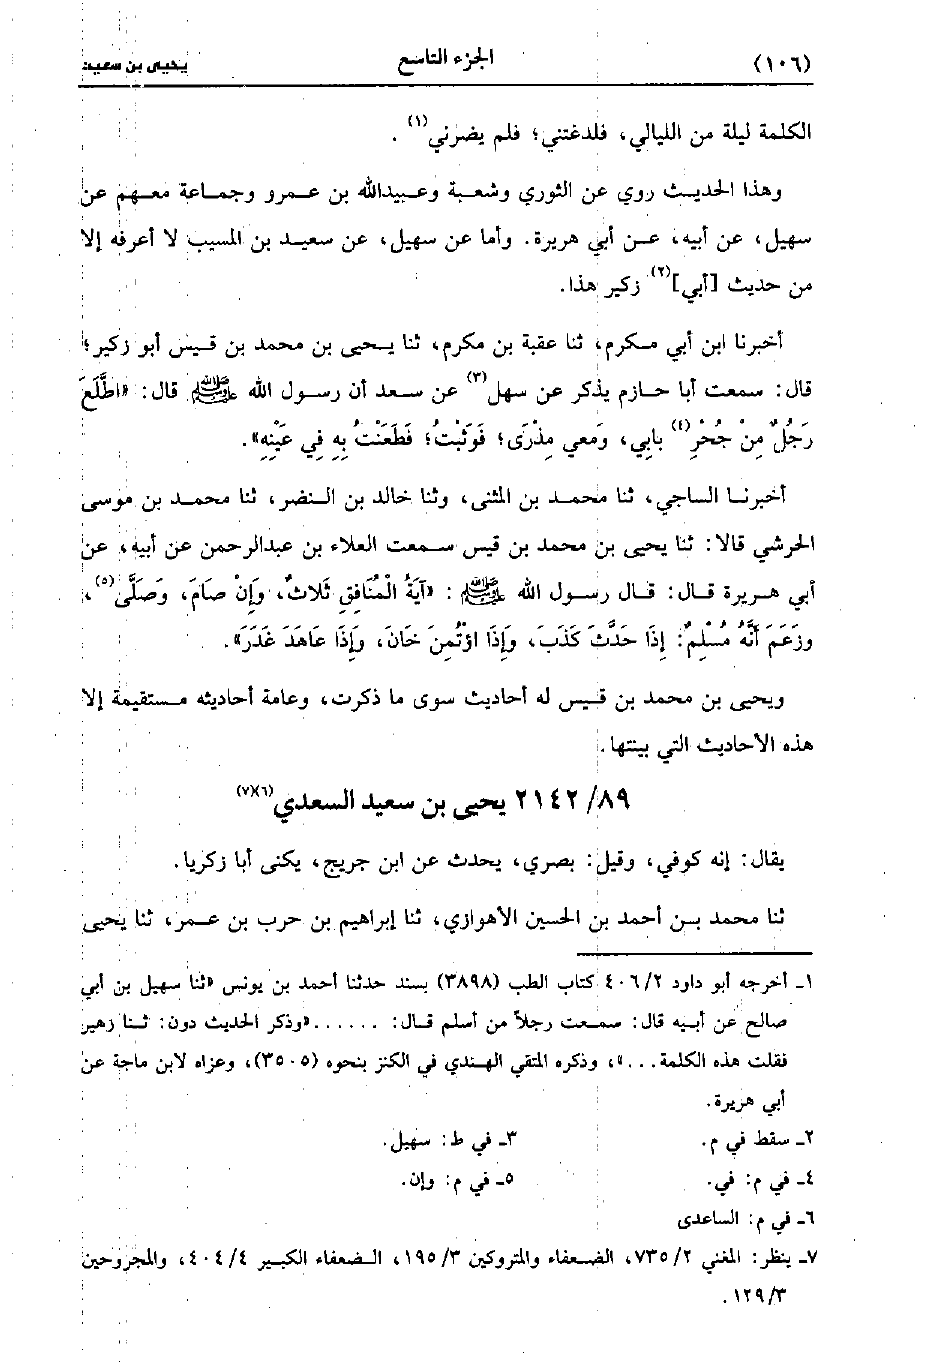 (١٠٦) الجزء التاسع يحيى بن سعيد
الكلمة ليلة من الليالي، فلدغتني؛ فلم يضرني(١).
وهذا الحديث روي عن الثوري وشعبة وعبيدالله بن عمرو وجماعة معهم عن
سهيل، عن أبيه، عن أبي هريرة. وأما عن سهيل، عن سعيد بن المسيب لا أعرفه إلا
من حديث [أبي](٢) زكير هذا.
أخبرنا ابن أبي مكرم، ثنا عقبة بن مكرم، ثنا يحيى بن محمد بن قيس أبو زكير؛
قال: سمعت أبا حازم يذكر عن سهل(٣) عن سعد أن رسول الله ﷺ قال: «اطَّلَعَ
رَجُلٌ مِنْ جُحْرِ(٤) بابي، وَمَعي مِدْرَى؛ فَوَثَبْتُ؛ فَطَعَنْتُ بِهِ فِي عَيْنِهِ».
أخبرنا الساجي، ثنا محمد بن المثنى، وثنا خالد بن النضر، ثنا محمد بن موسى
الحرشي قالا: ثنا يحيى بن محمد بن قيس سمعت العلاء بن عبدالرحمن عن أبيه، عن
أبي هريرة قال: قال رسول الله ﷺ: «آيَةُ الْمُنَافِقِ ثَلاثٌ، وَإِنْ صَامَ، وَصَلَّى(٥)،
وزَعَمَ أَنَّهُ مُسْلِمٌ: إِذَا حَدَّثَ كَذَبَ، وَإِذَا اؤْتُمِنَ خَانَ، وَإِذَا عَاهَدَ غَدَرَ».
ويحيى بن محمد بن قيس له أحاديث سوى ما ذكرت، وعامة أحاديثه مستقيمة إلا
هذه الأحاديث التي بينتها.
٢١٤٢/٨٩ يحيى بن سعيد السعدي(٦)(٧)
يقال: إنه كوفي، وقيل: بصري، يحدث عن ابن جريج، يكنى أبا زكريا.
ثنا محمد بن أحمد بن الحسين الأهوازي، ثنا إبراهيم بن حرب بن عمر، ثنا يحيى
١ـ أخرجه أبو داود ٤٠٦/٢ كتاب الطب (٣٨٩٨) بسند حدثنا أحمد بن يونس «ثنا سهيل بن أبي
صالح عن أبيه قال: سمعت رجلاً من أسلم قال: ......«وذكر الحديث دون: ثنا زهير
فقلت هذه الكلمة...»، وذكره المتقي الهندي في الكنز بنحوه (٣٥٠٥)، وعزاه لابن ماجة عن
أبي هريرة.
٢ـ سقط في م. ٣ـ في ط: سهيل.
٤ـ في م: في. ٥ـ في م: وإن.
٦ـ في م: الساعدى
٧ـ ينظر: المغني ٧٣٥/٢، الضعفاء والمتروكين ١٩٥/٣، الضعفاء الكبير ٤٠٤/٤، والمجروحين
١٢٩/٣.